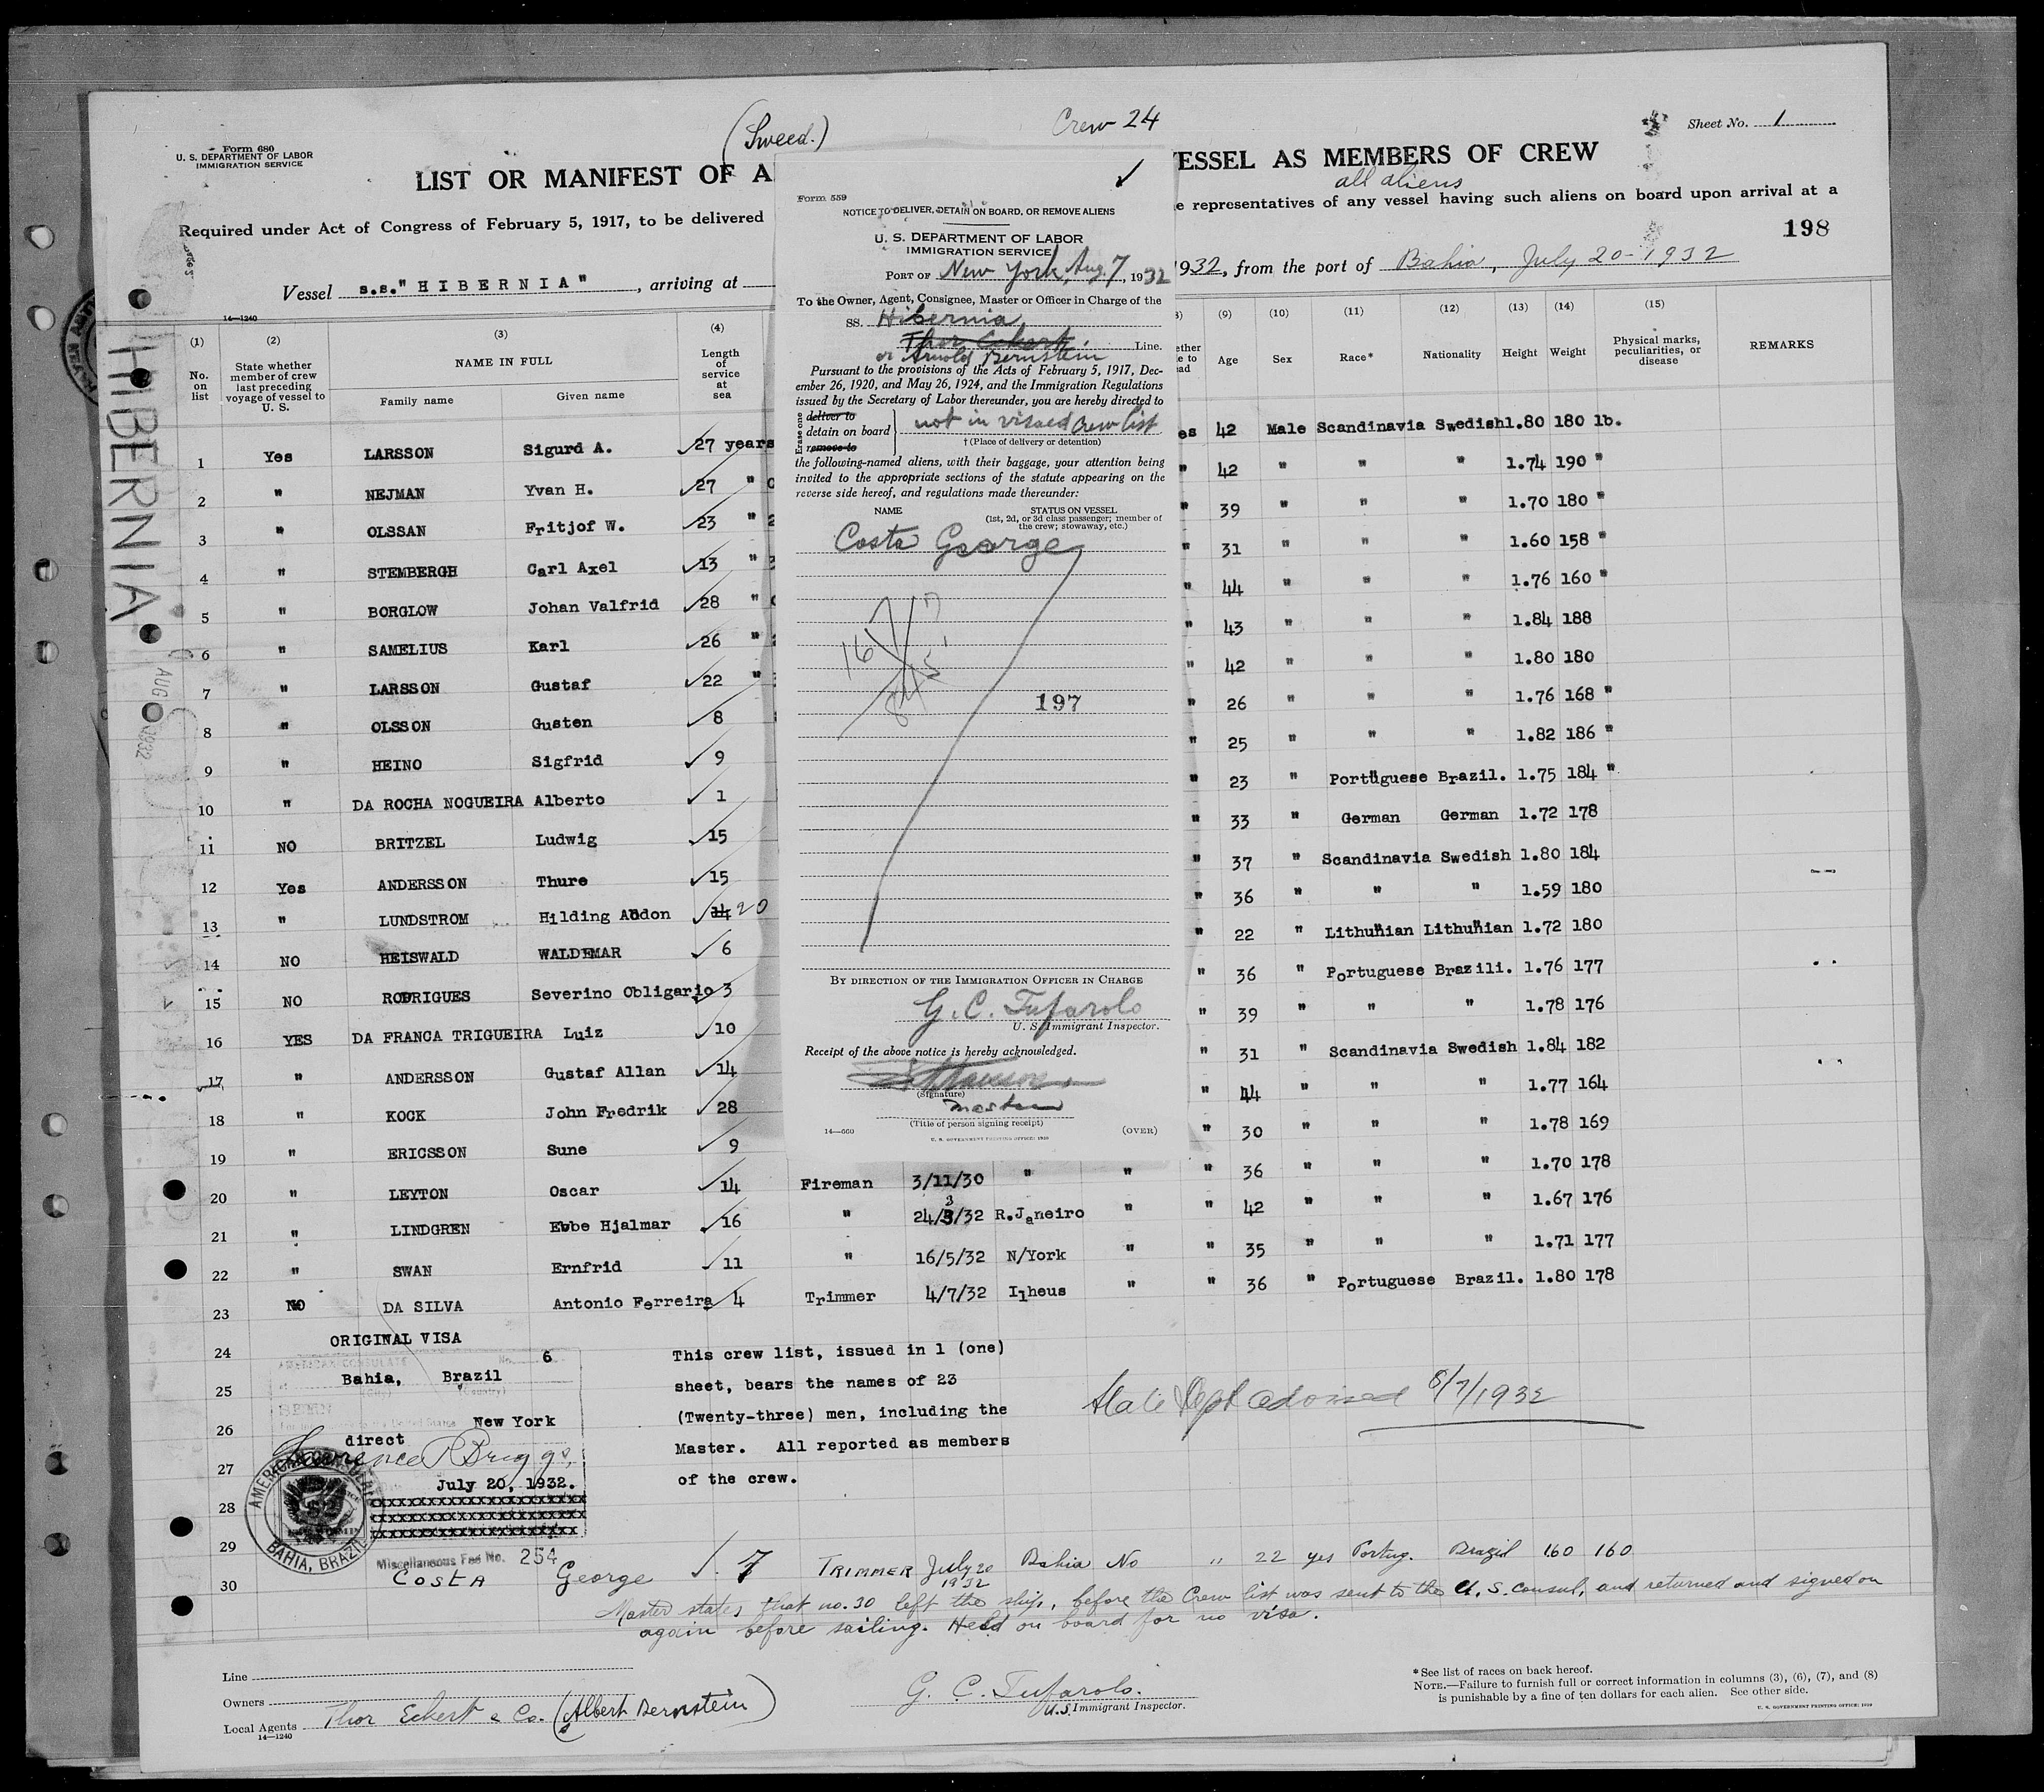 (Sweed.)
Crew 24
Form 680
U. S. DEPARTMENT OF LABOR
IMMIGRATION SERVICE
Sheet No. 1
LIST OR MANIFEST OF A
ESSEL AS MEMBERS OF CREW
all aliens
Required under Act of Congress of February 5, 1917, to be delivered
e representatives of any vessel having such aliens on board upon arrival at a
198
Vessel s.s."HIBERNIA", arriving at
1932, from the port of Bahia, July 20-1932
14—1240
HIBERNIA
AUG 1932
(1) (2) (3) (4)
No. on list
State whether member of crew last preceding voyage of vessel to U. S.
NAME IN FULL
Family name Given name
Length of service at sea
(9) (10) (11) (12) (13) (14) (15)
Age Sex Race* Nationality Height Weight
Physical marks, peculiarities, or disease
REMARKS
1 Yes LARSSON Sigurd A. 27 years es 42 Male Scandinavia Swedish 1.80 180 lb.
2 " NEJMAN Yvan H. 27 " " 42 " " " 1.74 190 "
3 " OLSSAN Fritjof W. 23 " " 39 " " " 1.70 180 "
4 " STEMBERGH Carl Axel 13 " " 31 " " " 1.60 158 "
5 " BORGLOW Johan Valfrid 28 " " 44 " " " 1.76 160 "
6 " SAMELIUS Karl 26 " " 43 " " " 1.84 188
7 " LARSSON Gustaf 22 " " 42 " " " 1.80 180
8 " OLSSON Gusten 8 " 26 " " " 1.76 168 "
9 " HEINO Sigfrid 9 " 25 " " " 1.82 186 "
10 " DA ROCHA NOGUEIRA Alberto 1 " 23 " Portuguese Brazil. 1.75 184 "
11 NO BRITZEL Ludwig 15 " 33 " German German 1.72 178
12 Yes ANDERSSON Thure 15 " 37 " Scandinavia Swedish 1.80 184
13 " LUNDSTROM Hilding Audon 14 20 " 36 " " " 1.59 180
14 NO HEISWALD WALDEMAR 6 " 22 " Lithunian Lithunian 1.72 180
15 NO RODRIGUES Severino Obligario 3 " 36 " Portuguese Brazili. 1.76 177
16 YES DA FRANCA TRIGUEIRA Luiz 10 " 39 " " " 1.78 176
17 " ANDERSSON Gustaf Allan 14 " 31 " Scandinavia Swedish 1.84 182
18 " KOCK John Fredrik 28 " 44 " " " 1.77 164
19 " ERICSSON Sune 9 " 30 " " " 1.78 169
20 " LEYTON Oscar 14 Fireman 3/11/30 " " " 36 " " " 1.70 178
21 " LINDGREN Ebbe Hjalmar 16 " 24/3/32 R.Janeiro " " 42 " " " 1.67 176
22 " SWAN Ernfrid 11 " 16/5/32 N/York " " 35 " " " 1.71 177
23 NO DA SILVA Antonio Ferreira 4 Trimmer 4/7/32 Ilheus " " 36 " Portuguese Brazil. 1.80 178
24
25
26
27
28
29
30 COSTA George 7 TRIMMER July 20 1932 Bahia No " 22 yes Portug. Brazil 160 160
Master states that no. 30 left the ship, before the Crew list was sent to the U.S. consul, and returned and signed on
again before sailing. Held on board for no visa.
ORIGINAL VISA
AMERICAN CONSULATE No. 6
Bahia, Brazil
(City) (Country)
SEEN
New York
direct
July 20, 1932.
AMERICAN CONSULATE
BAHIA, BRAZIL
Miscellaneous Fee No. 254
This crew list, issued in 1 (one)
sheet, bears the names of 23
(Twenty-three) men, including the
Master. All reported as members
of the crew.
State Dept advised 8/7/1932
Line
Owners
Local Agents Thor Eckert & Co. (Albert Bernstein)
14—1240
G. C. Tufarolo.
U.S. Immigrant Inspector.
*See list of races on back hereof.
NOTE.—Failure to furnish full or correct information in columns (3), (6), (7), and (8)
is punishable by a fine of ten dollars for each alien. See other side.
U. S. GOVERNMENT PRINTING OFFICE: 1929
Form 559
NOTICE TO DELIVER, DETAIN ON BOARD, OR REMOVE ALIENS
U. S. DEPARTMENT OF LABOR
IMMIGRATION SERVICE
PORT OF New York, Aug. 7, 1932
To the Owner, Agent, Consignee, Master or Officer in Charge of the
SS. Hibernia
Thor Eckert
or Arnold Bernstein Line.
Pursuant to the provisions of the Acts of February 5, 1917, Dec-
ember 26, 1920, and May 26, 1924, and the Immigration Regulations
issued by the Secretary of Labor thereunder, you are hereby directed to
Erase one
deliver to
detain on board
remove to
not in visaed crew list
† (Place of delivery or detention)
the following-named aliens, with their baggage, your attention being
invited to the appropriate sections of the statute appearing on the
reverse side hereof, and regulations made thereunder:
NAME
STATUS ON VESSEL
(1st, 2d, or 3d class passenger; member of
the crew; stowaway, etc.)
Costa George
197
BY DIRECTION OF THE IMMIGRATION OFFICER IN CHARGE
G. C. Tufarolo
U. S. Immigrant Inspector.
Receipt of the above notice is hereby acknowledged.
(Signature)
Master
(Title of person signing receipt)
14—660
(OVER)